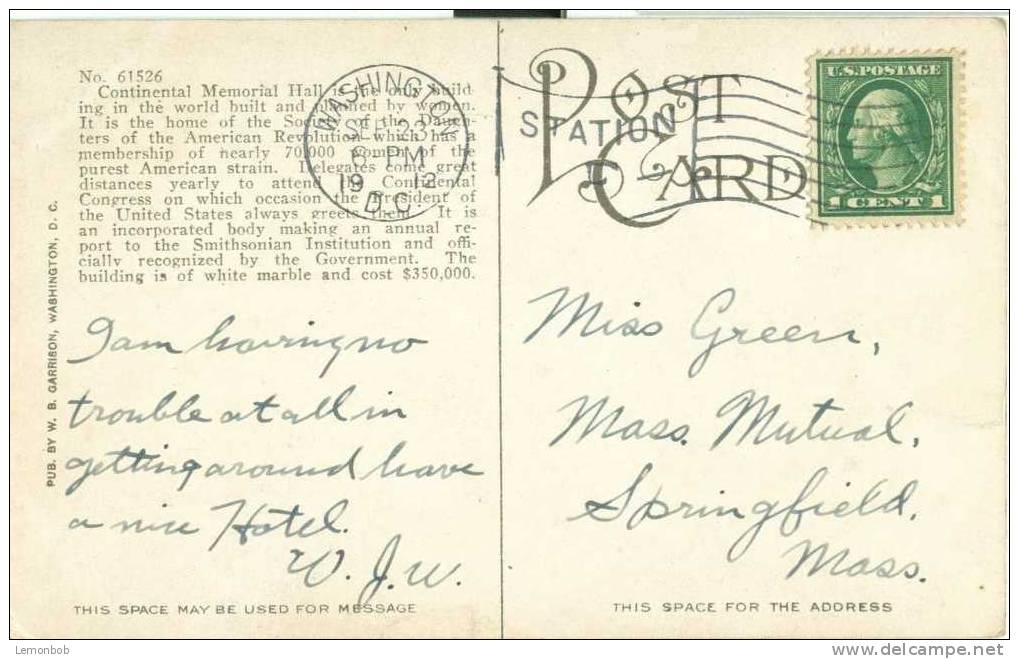 No. 61526
Continental Memorial Hall is the only build-
ing in the world built and planned by women.
It is the home of the Society of the Daugh-
ters of the American Revolution which has a
membership of nearly 70,000 women of the
purest American strain. Delegates come great
distances yearly to attend the Continental
Congress on which occasion the President of
the United States always greets them. It is
an incorporated body making an annual re-
port to the Smithsonian Institution and offi-
cially recognized by the Government. The
building is of white marble and cost $350,000.
PUB. BY W. B. GARRISON, WASHINGTON, D. C.
I am having no
trouble at all in
getting around have
a nice Hotel.
W. J. W.
THIS SPACE MAY BE USED FOR MESSAGE
WASHINGTON
PM
19 12
D.C.
STATION
POST
CARD
U.S. POSTAGE
1 CENT 1
Miss Green,
Mass. Mutual,
Springfield,
Mass.
THIS SPACE FOR THE ADDRESS
Lemonbob
delcampe.net